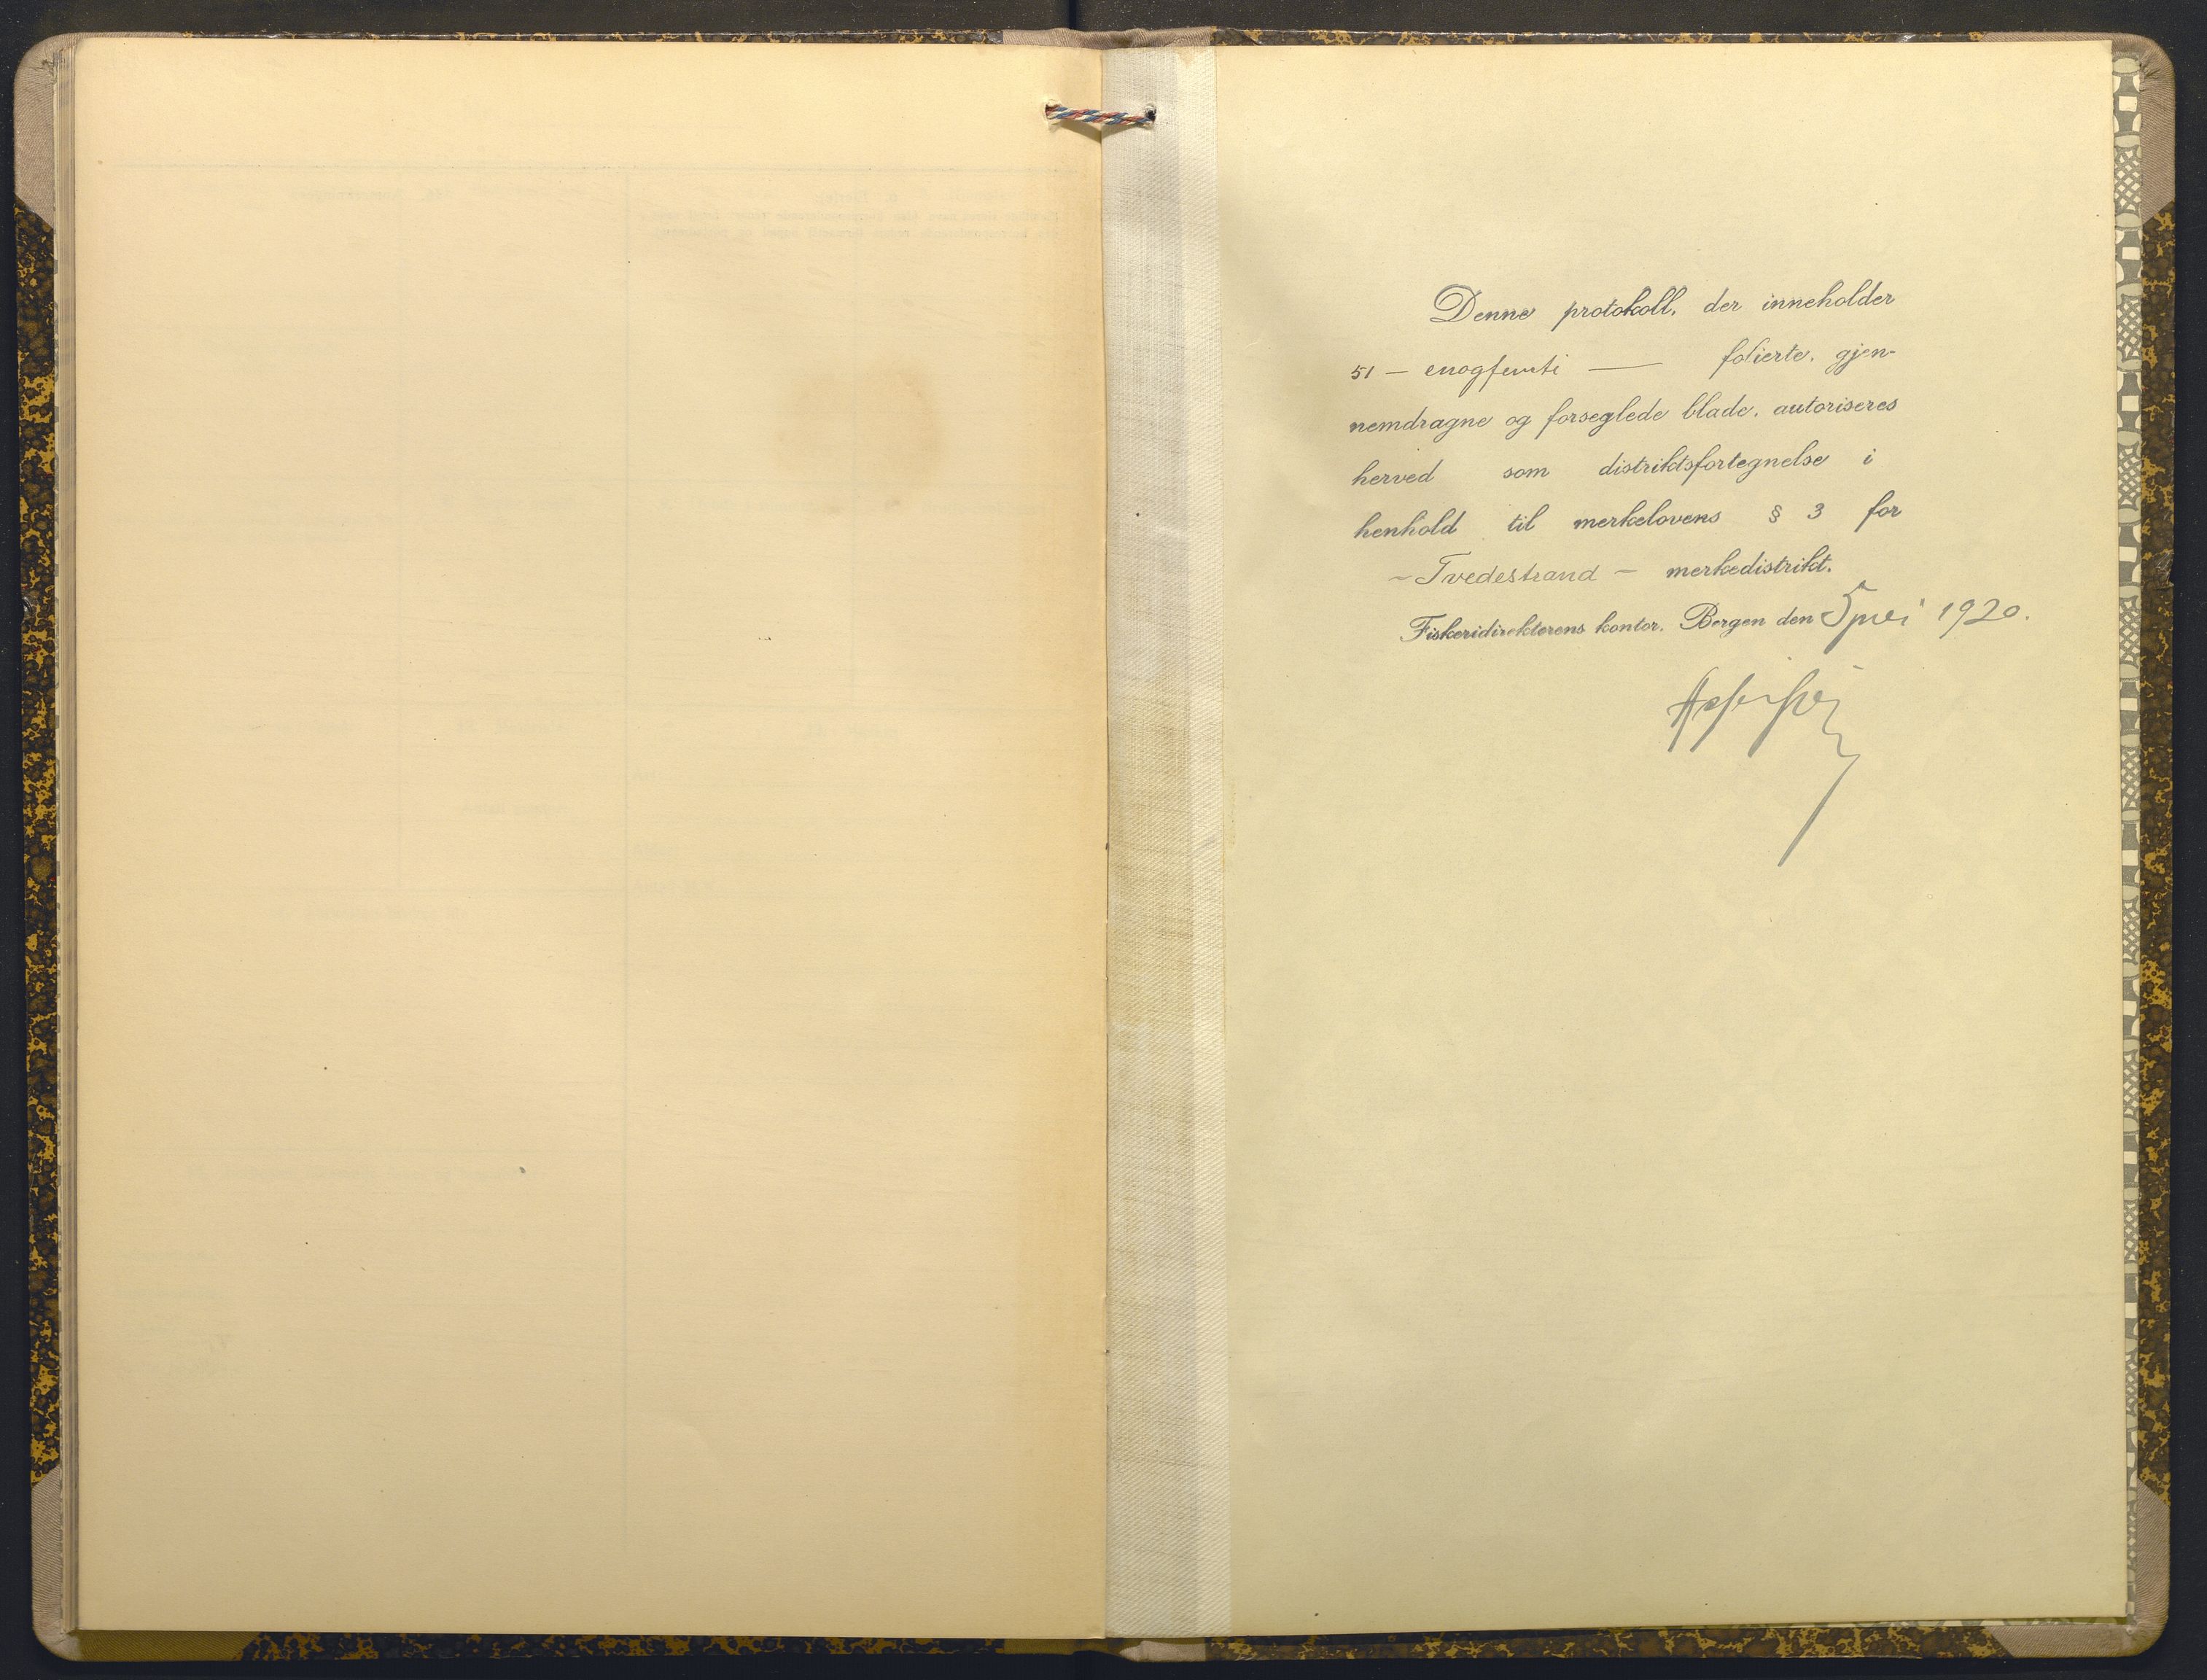 Denne protokoll, der inneholder
51 — enogfemti — folierte, gjen-
nemdragne og forseglede blade, autoriseres
herved som distriktsfortegnelse i
henhold til merkelovens § 3 for
- Tvedestrand - merkedistrikt.
Fiskeridirektørens kontor, Bergen den 5 mai 1920.